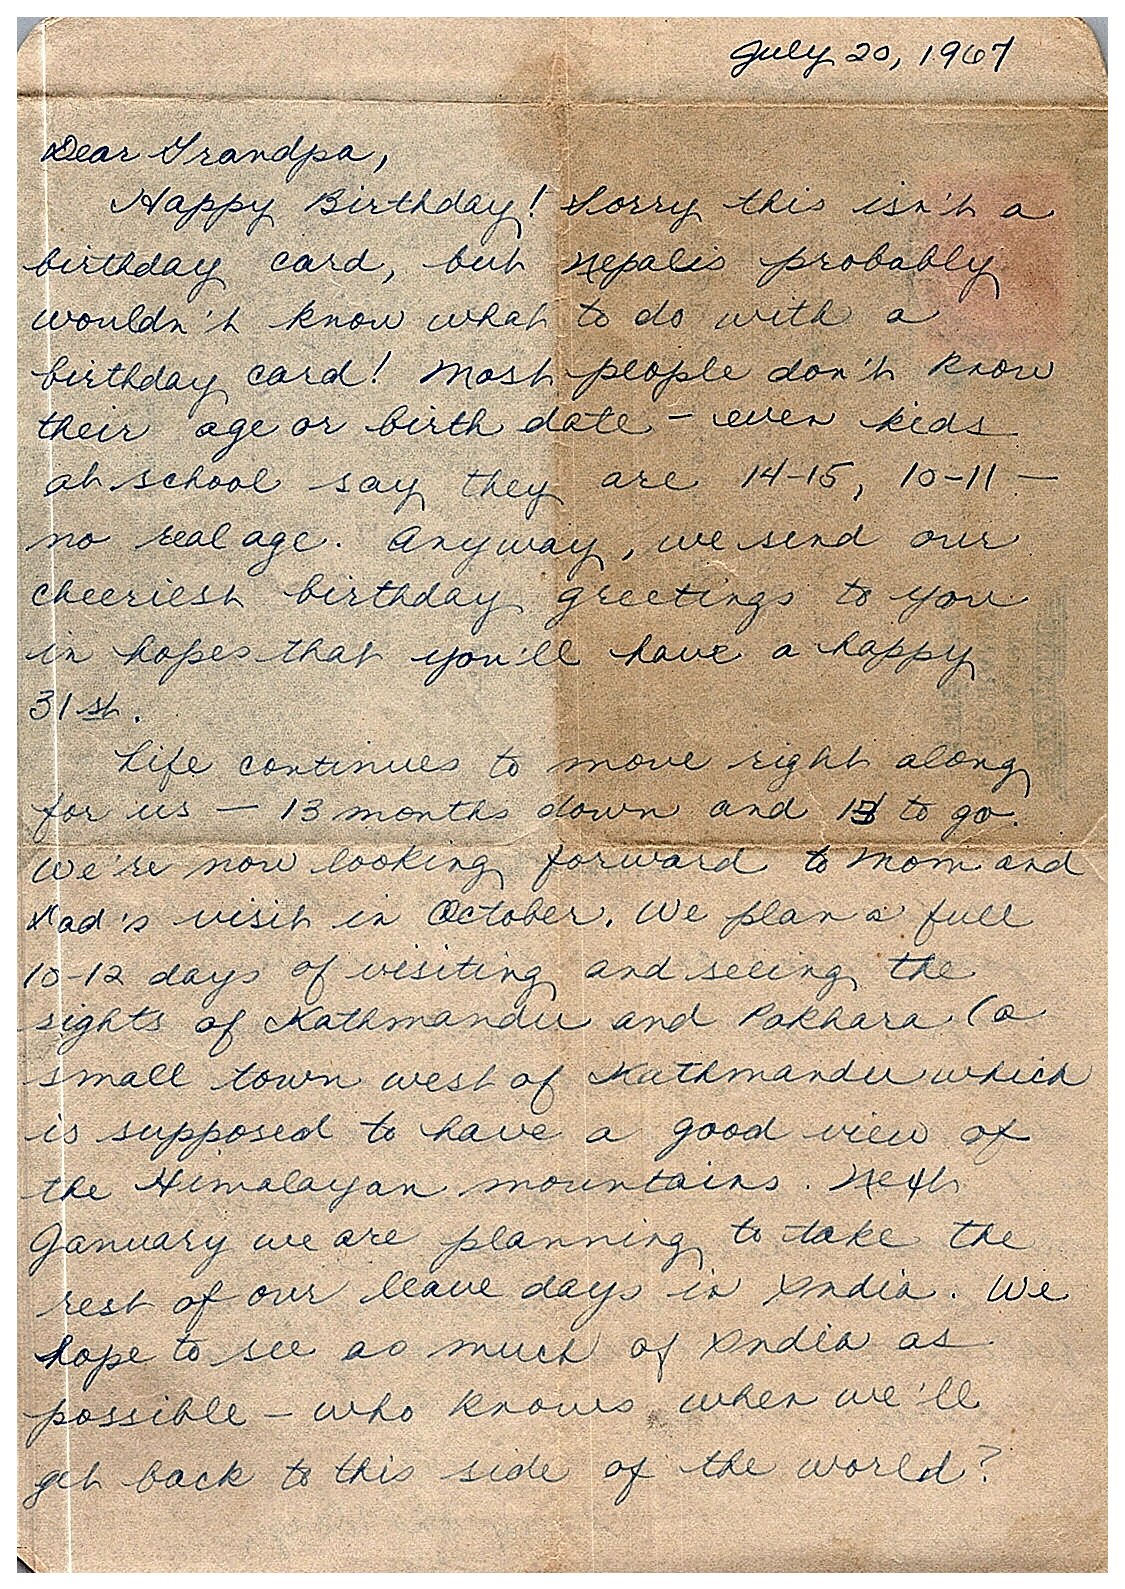 July 20, 1967
Dear Grandpa,
Happy Birthday! Sorry this isn't a
birthday card, but Nepalis probably
wouldn't know what to do with a
birthday card! Most people don't know
their age or birth date - even kids
at school say they are 14-15, 10-11 -
no real age. Anyway, we send our
cheeriest birthday greetings to you
in hopes that you'll have a happy
31st.
Life continues to move right along
for us - 13 months down and to go.
We're now looking forward to Mom and
Dad's visit in October. We plan a full
10-12 days of visiting and seeing the
sights of Kathmandu and Pokhara (a
small town west of Kathmandu which
is supposed to have a good view of
the Himalayan mountains. Next
January we are planning to take the
rest of our leave days in India. We
hope to see as much of India as
possible - who knows when we'll
get back to this side of the world?